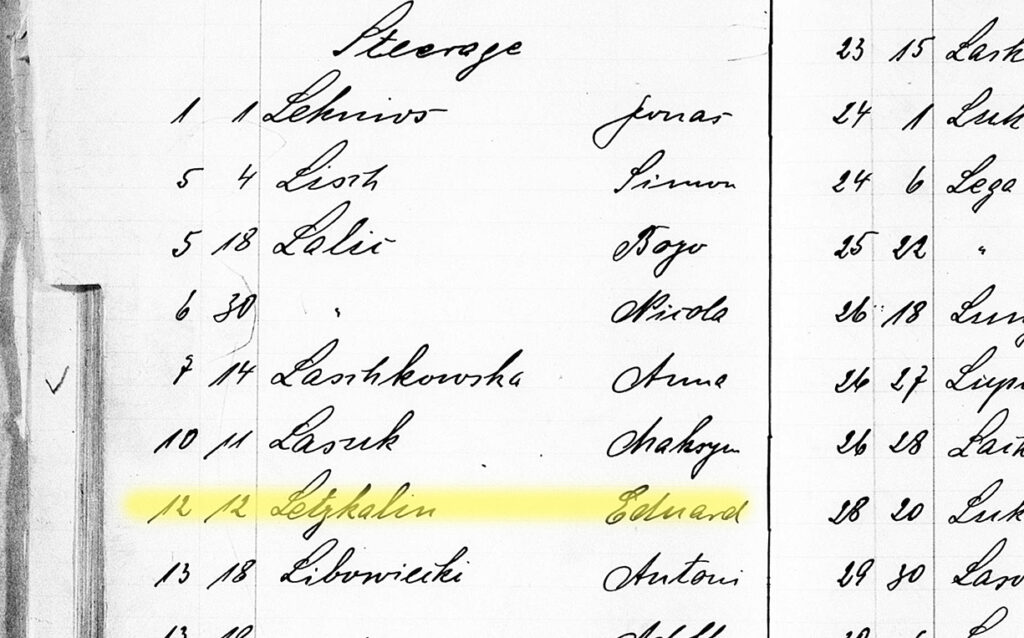 Steerage
1 1 Leknios Jonas
5 4 Lisch Simon
5 18 Lalić Bozo
6 30 " Nicola
7 14 Laschkowska Anna
10 11 Lasuk Maksym
12 12 Letzkalin Eduard
13 18 Libowiecki Antoni
13 18
23 15
24 1
24 6 Lega
25 22 "
26 18
26 27
26 28
28 20
29 30